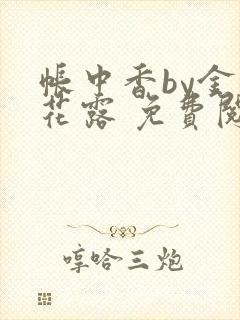 帳中香by金
花露 免費閱
哼哈三炮